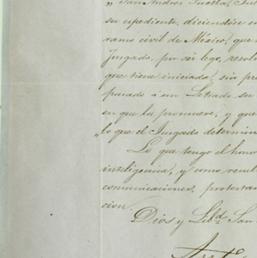 „ San Andres Tuxtla, Juz
su espediente, diciendise en
ramo civil de México, que
Juzgado, por ser lego, resol
que tiene iniciado, sin pre
parado á un Letrado su
en que la promueve, y que
lo que el Juzgado determin
Lo que tengo el hono
inteligencia, y como resul
comunicaciones, protestan
cion.
Dios y Libd. San